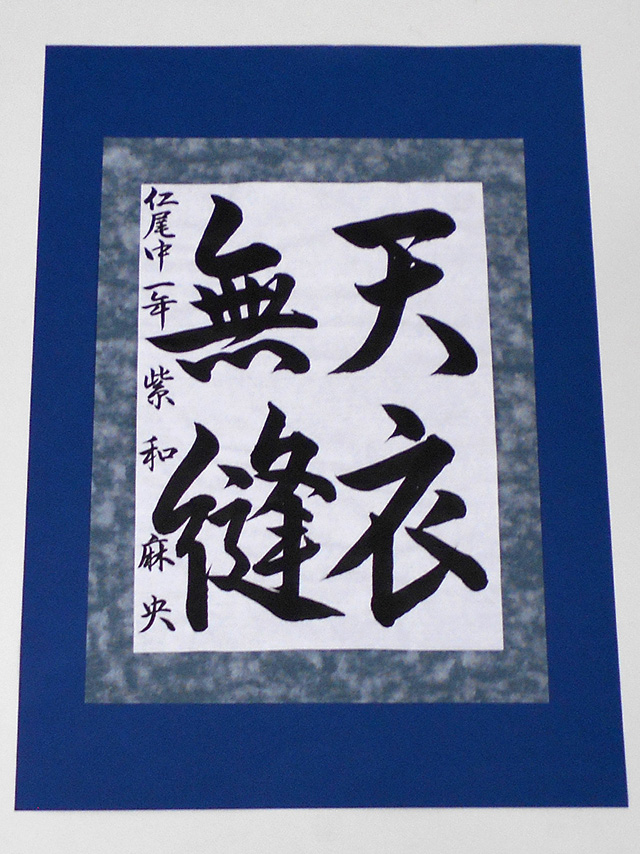 天衣
無縫
仁尾中一年 紫和麻央